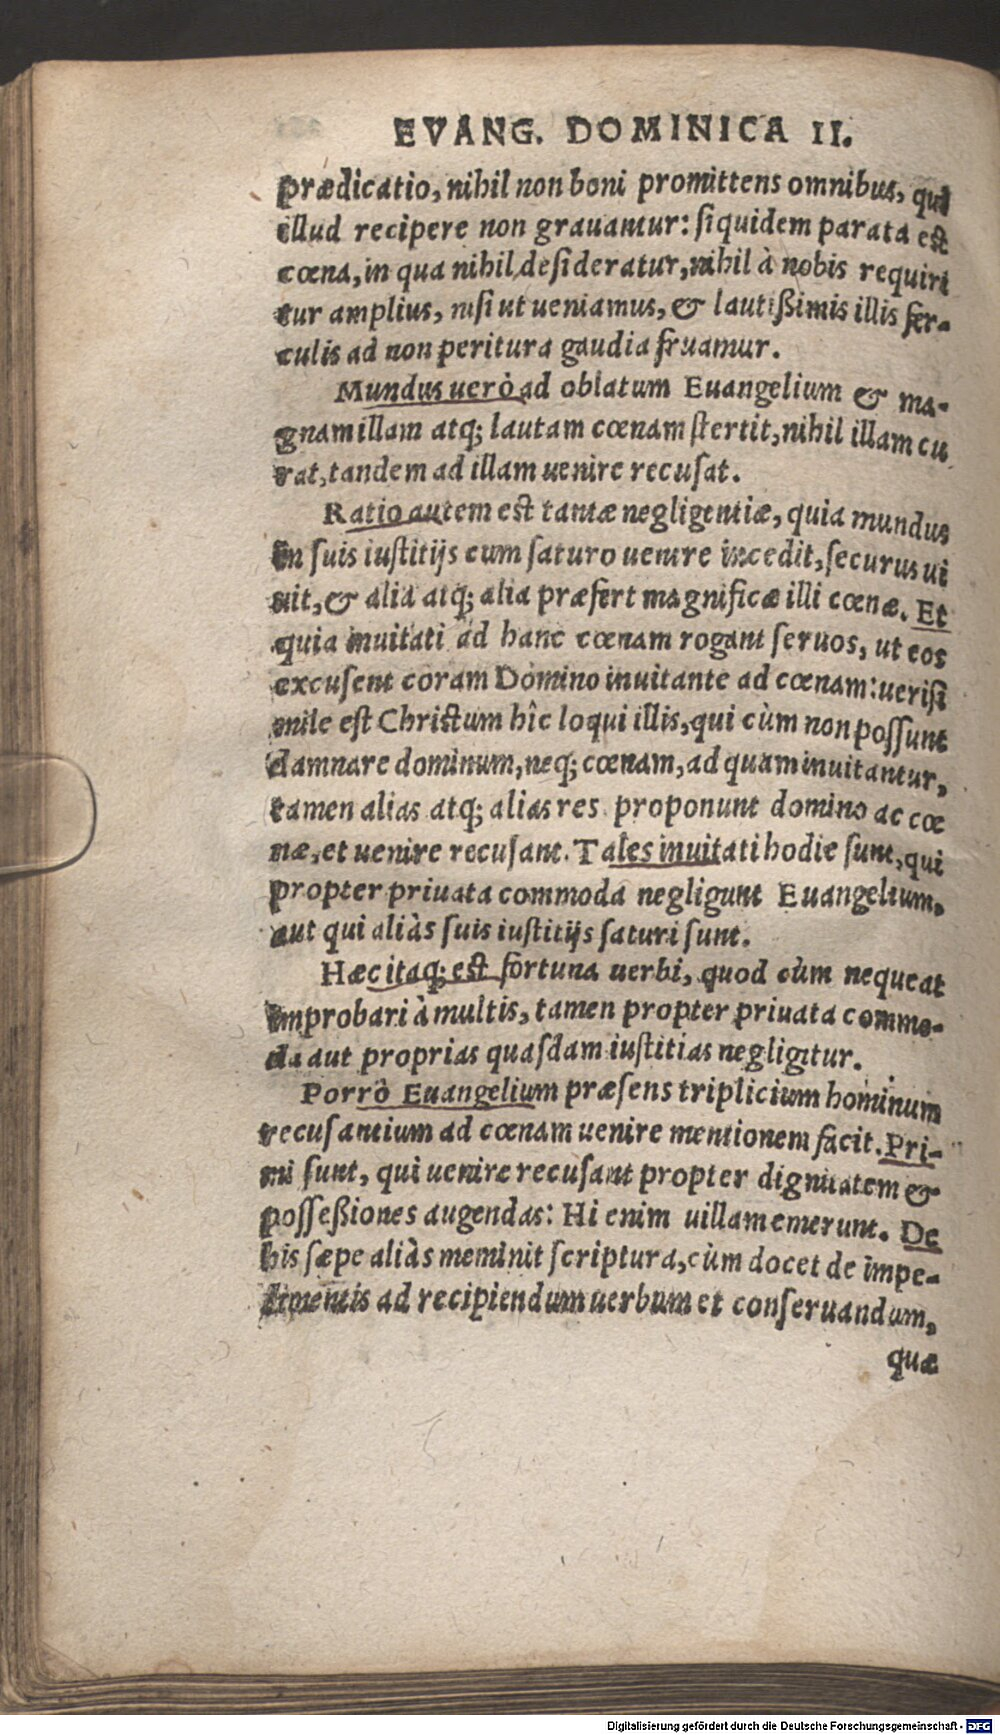 EVANG. DOMINICA II.
prædicatio, nihil non boni promittens omnibus, qui
illud recipere non grauantur: ſiquidem parata eſt
cœna, in qua nihil deſideratur, nihil à nobis requiri
tur amplius, niſi ut ueniamus, & lautißimis illis fer-
culis ad non peritura gaudia fruamur.
Mundus uerò ad oblatum Euangelium & ma-
gnam illam atq; lautam cœnam ſtertit, nihil illam cu
rat, tandem ad illam uenire recuſat.
Ratio autem eſt tantæ negligentiæ, quia mundus
in ſuis iuſtitijs cum ſaturo uentre incedit, ſecurus ui
uit, & alia atq; alia præfert magnificæ illi cœnæ. Et
quia inuitati ad hanc cœnam rogant ſeruos, ut eos
excuſent coram Domino inuitante ad cœnam: ueriſi
mile eſt Chriſtum hîc loqui illis, qui cùm non poſſunt
damnare dominum, neq; cœnam, ad quam inuitantur,
tamen alias atq; alias res proponunt domino ac cœ
næ, et uenire recuſant. Tales inuitati hodie ſunt, qui
propter priuata commoda negligunt Euangelium,
aut qui aliàs ſuis iuſtitijs ſaturi ſunt.
Hæc itaq; eſt fortuna uerbi, quod cùm nequeat
improbari à multis, tamen propter priuata commo-
da aut proprias quaſdam iuſtitias negligitur.
Porrò Euangelium præſens triplicium hominum
recuſantium ad cœnam uenire mentionem facit. Pri-
mi ſunt, qui uenire recuſant propter dignitatem &
poſſeßiones augendas: Hi enim uillam emerunt. De
his ſæpe aliàs meminit ſcriptura, cùm docet de impe-
dimentis ad recipiendum uerbum et conſeruandum,
quæ
Digitalisierung gefördert durch die Deutsche Forschungsgemeinschaft - DFG